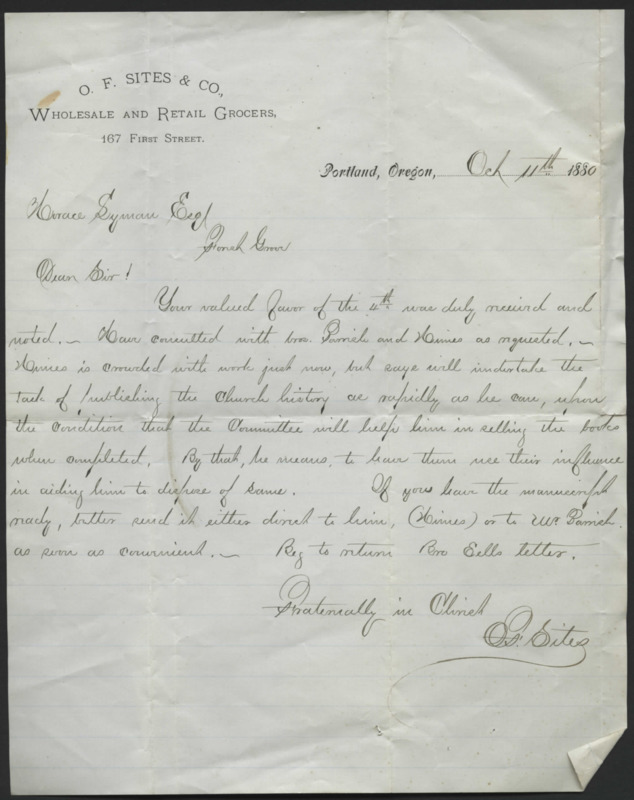 O. F. SITES & CO.,
WHOLESALE AND RETAIL GROCERS,
167 FIRST STREET.
Portland, Oregon, Oct 11th 1880
Horace Lyman Esq
Forest Grove
Dear Sir!
Your valued favor of the 4th was duly received and
noted. ~ Have consulted with bro. Parrish and Himes as requested. ~
Himes is crowded with work just now, but says will undertake the
task of publishing the Church history as rapidly as he can, upon
the condition that the Committee will help him in selling the books
when completed. By that, he means, to have them use their influence
in aiding him to dispose of same. If you have the manuscript
ready, better send it either direct to him, (Himes) or to Mr Parrish.
as soon as convenient. ~ Beg to return Bro Eells letter.
Fraternally in Christ
O.F. Sites